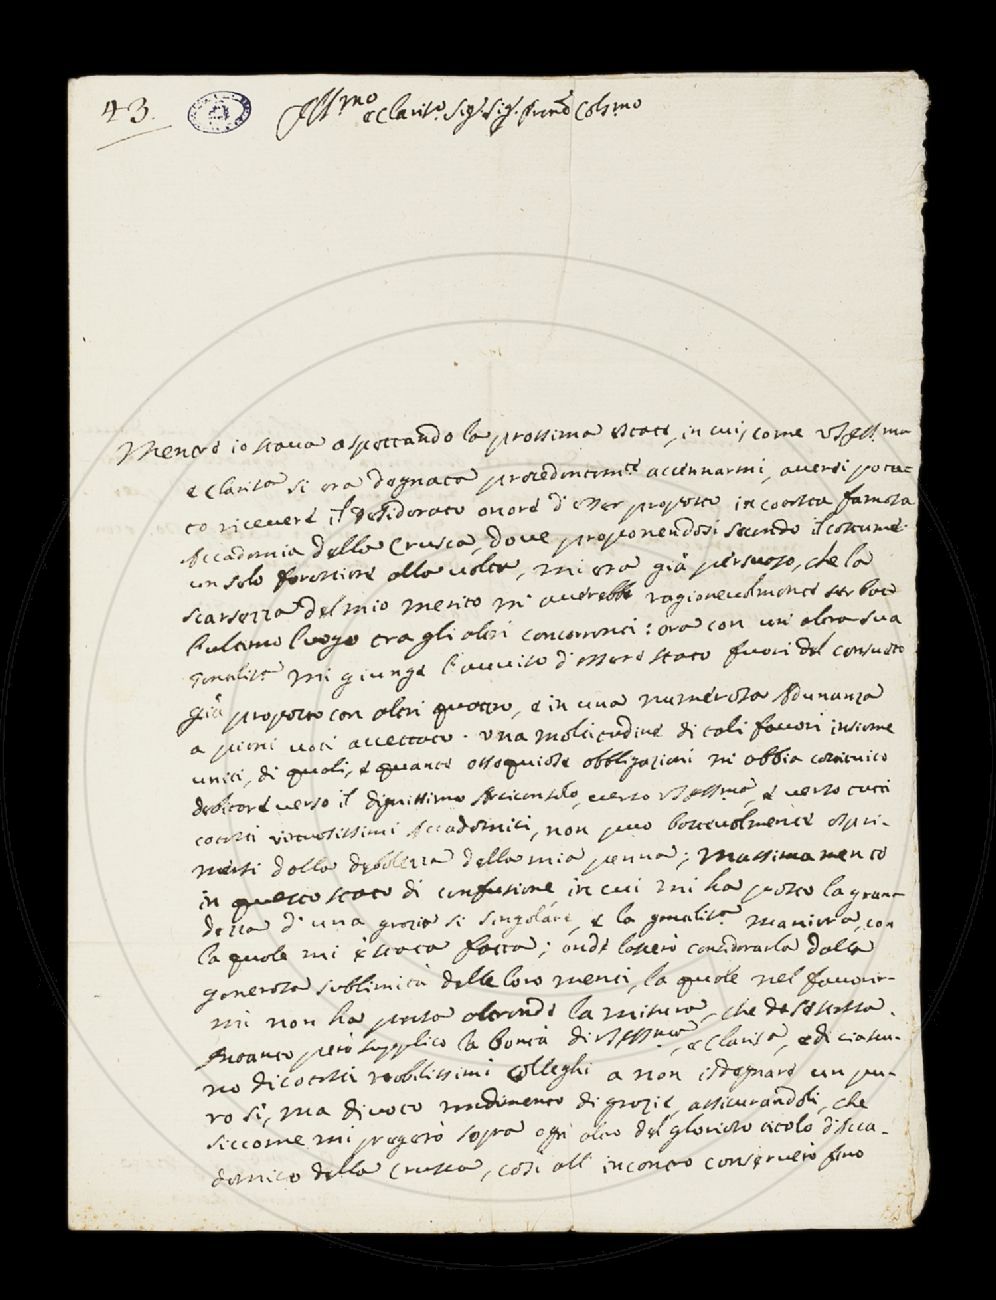 43.
Ill.mo e Clariss.o Sig.r Sig.r Pron. Col.mo
Mentre io stava aspettando la prossima estate, in cui, come VS Ill.ma
e Clariss.a si era degnata precedentem.te accennarmi, averei potu-
to ricevere il desiderato onore d'esser proposto in cotesta famosa
Accademia della Crusca, dove proponendosi secondo il costume
un solo forestiere alla volta, mi era già persuaso, che la
scarsezza del mio merito mi averebbe ragionevolmente serbato
l'ultimo luogo tra gli altri concorrenti: ora con un'altra sua
gentiliss.a mi giunge l'avviso d'essere stato fuori del consueto
già proposto con altri quattro, e in una numerosa Adunanza
a pieni voti accettato. Una moltitudine di tali favori insieme
uniti, di quali, e quante ossequiose obbligazioni mi abbia costituito
debitore verso il dignissimo Arciconsolo, verso VS Ill.ma, e verso tutti
cotesti virtuosissimi Accademici, non può bastevolmente espri-
mersi dalla debolezza della mia penna; massimamente
in questo stato di confusione in cui mi ha posto la gran-
dezza d'una grazia sì singolare, e la gentiliss.a maniera, con
la quale mi è stata fatta; onde lascerò considerarla dalla
generosa sublimità delle loro menti, la quale nel favorir-
mi non ha presa altronde la misura, che da se stessa.
Intanto però supplico la bontà di VS Ill.ma, e Clariss.a, e di ciascu-
no di cotesti nobilissimi Colleghi a non isdegnare un pu-
ro sì, ma divoto rendimento di grazie, assicurandoli, che
siccome mi pregerò sopra ogni altro del glorioso titolo d'Acca-
demico della Crusca, così all'incontro conserverò fino